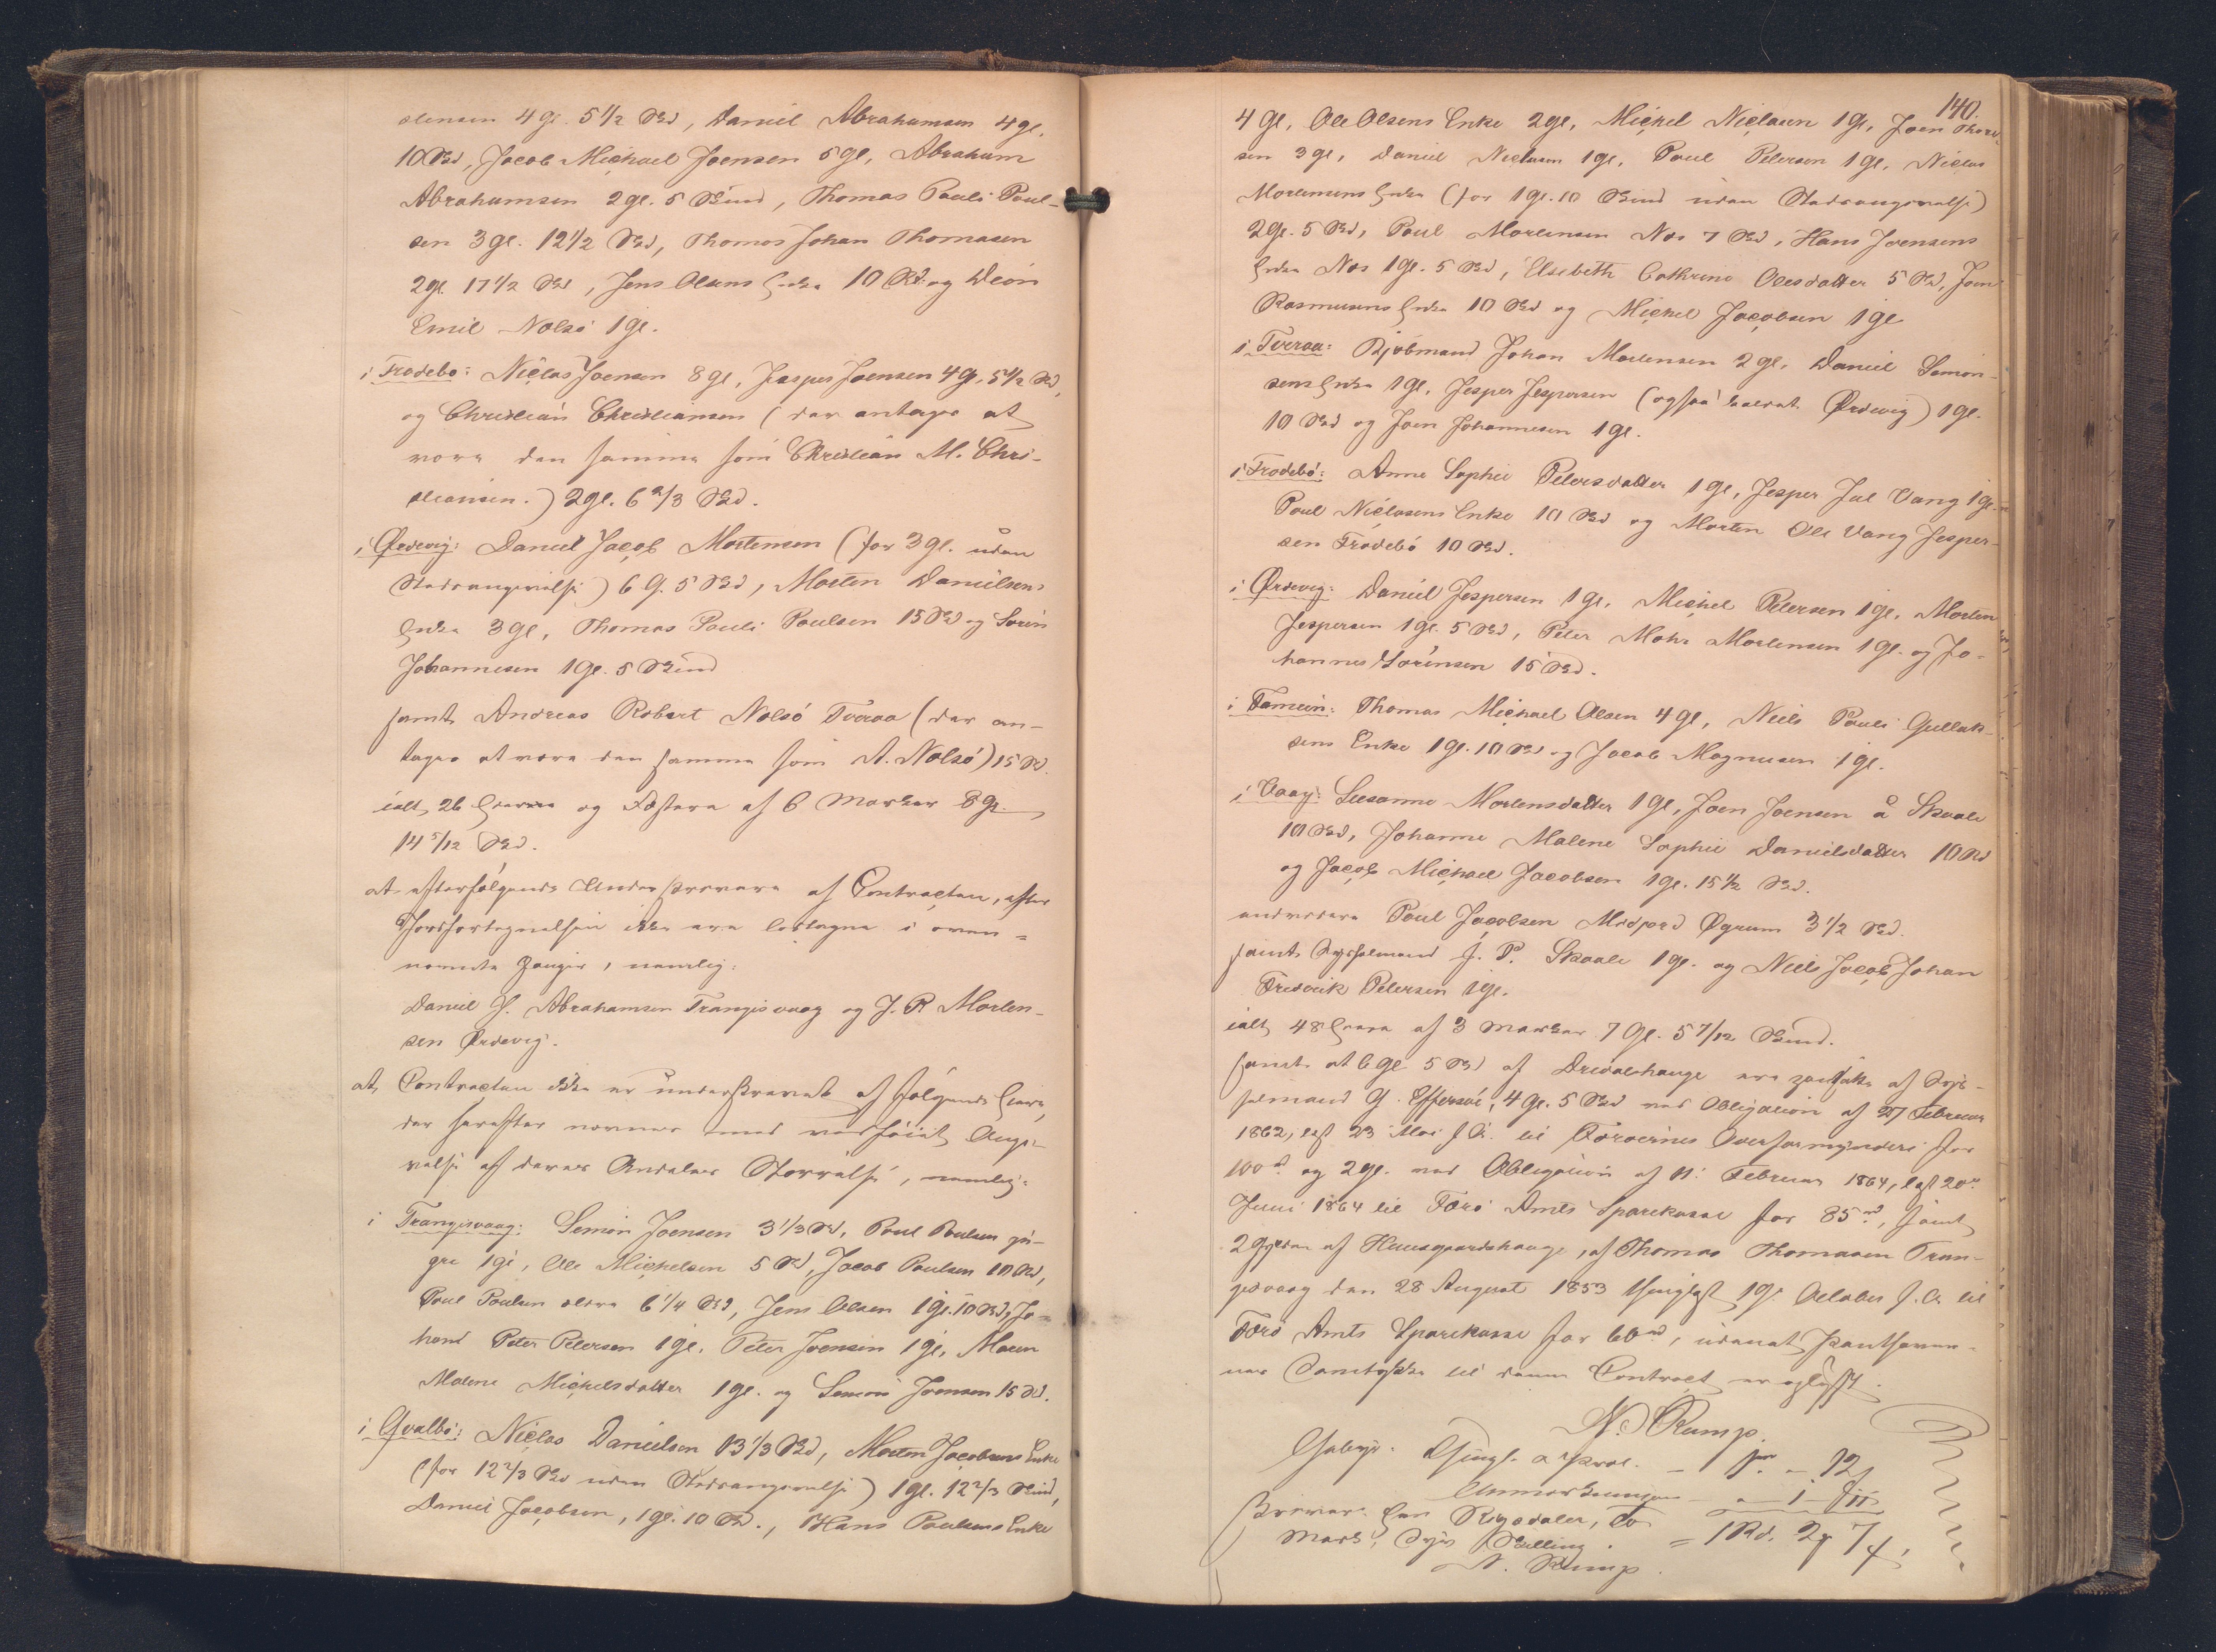 stensen 4 gl. 5 1/2 Skd, Daniel Abrahamsen 4 gl.
10 Skd, Jacob Michael Joensen 5 gl, Abraham
Abrahamsen 2 gl. 5 Skind, Thomas Pauli Poul-
sen 3 gl. 12 1/2 Skd, Thomas Johan Thomasen
2 gl 17 1/2 Skd, Jens Olsens Enke 10 Skd og
Emil Nolsö 1 gl.
i Frodebø: Niclas Joensen 8 gl, Jesper Joensen 4 g. 5 1/2 Skd,
og Christian Christiansen (der antages at
være den samme som Christian M. Chri-
stiansen.) 2 gl. 6 2/3 Skd.
i Ørdevig: Daniel Jacob Mortensen (for 3 gl. uden
Stedsangivelse) 6 G. 5 Skd, Morten Danielsens
Enke 3 gl, Thomas Pauli Poulsen 15 Skd og Sørin
Johannesen 1 gl. 5 Skind
samt Andreas Robert Nolsö Tveraa (der an-
tages at være den samme som A. Nolsö) 15 Skd.
ialt 26 Eiere og Fæstere af 6 Marker 8 gl.
14 5/12 Skd.
at efterfølgende Underskrivere af Contracten, efter
Jordfortegnelsen ikke ere befagne i oven-
nævnte Hauger, nemlig:
Daniel J. Abrahamsen Trangisvaag og J. P. Morten-
sen Ørdevig.
at Contracten ikke er underskrevet af følgende Eiere,
der herefter nævnes med vedføiet Angi-
velse af deres Andeles Størrelse, nemlig:
i Trangisvaag: Simon Joensen 3 1/3 Skd, Poul Poulsen yn-
gre 1 gl, Ole Michelsen 5 Skd, Jacob Poulsen 10 Skd,
Poul Poulsen ældre 6 1/4 Skd, Jens Olsen 1 gl. 10 Skd, Jo-
hand Peter Petersen 1 gl, Peter Joensen 1 gl, Maren
Malene Michelsdatter 1 gl. og Simon Joensen 15 Skd.
i Qvalbø: Niclas Danielsen 13 1/3 Skd, Morten Jacobsens Enke
(for 12 2/3 Skd uden Stedsangivelse) 1 gl. 12 2/3 Skind,
Daniel Jacobsen, 1 gl. 10 Skd., Hans Poulsens Enke
140.
4 gl, Ole Olsens Enke 2 gl, Michel Niclasen 1 gl, Joen Thom-
sen 3 gl, Daniel Niclasen 1 gl, Poul Petersen 1 gl, Niclas
Mortensens Enke (for 1 gl. 10 Skind uden Stedsangivelse)
2 gl. 5 Skd, Poul Mortensen Nes 7 Skd, Hans Joensens
Enke Nes 1 gl. 5 Skd, Elsebeth Cathrine Olesdatter 5 Skd, Joen
Rasmusens Enke 10 Skd og Michel Jacobsen 1 gl
i Tveraa: Kjøbmand Johan Mortensen 2 gl, Daniel Simon-
sens Enke 1 gl, Jesper Jespersen (ogsaa kaldet Ørdevig) 1 gl.
10 Skd og Joen Johannesen 1 gl.
i Frodebø: Anne Sophie Petersdatter 1 gl, Jesper Jul Vang 1 gl.
Poul Niclasens Enke 10 Skd og Morten Ole Vang Jesper-
sen Frodebö 10 Skd.
i Ørdevig: Daniel Jespersen 1 gl, Michel Petersen 1 gl, Morten
Jespersen 1 gl. 5 Skd, Peter Mohr Mortensen 1 gl. og Jo-
hannes Sörensen 15 Skd.
i Famien: Thomas Michael Olsen 4 gl, Niels Pauli Gullak-
sens Enke 1 gl. 10 Skd og Jacob Magnusen 1 gl.
i Vaag: Susanne Mortensdatter 1 gl, Joen Joensen å Skaale
10 Skd, Johanne Malene Sophie Danielsdatter 10 Skd
og Jacob Michael Jacobsen 1 gl. 15 1/2 Skd.
endvidere Poul Jacobsen Midfjord Øgrum 3 1/2 Skd.
samt Sysselmand J. P. Skaale 1 gl. og Niels Jacob Johan
Fredrik Petersen 1 gl.
ialt 48 Eiere af 3 Marker 7 Gl. 5 7/12 Skind.
samt at 6 gl 5 Skd af Drevalshauge ere pantsatte af Sys-
selmand G. Effersøe, 4 gl. 5 Skd ved Obligation af 27 Februar
1862, læst 23 Mai s. A. til Færøernes Overformynderi for
100 rd og 2 gl. ved Obligation af 11. Februar 1864, læst 20de
Juni 1864 til Færö Amts Sparekasse for 85 rd, samt
2 Gylden af Huusgaardshauge, af Thomas Thomasen Tran-
gisvaag den 28 August 1853 thinglæst 19. October s. A. til
Færö Amts Sparekasse for 60 rd, uden at Panthaver-
nes Samtykke til denne Contract er oplyst.
N. Rump.
Gebyr. Thingl. a 12
Anmærkningen
Skriver Een Rigsdaler, To
Mark, Syv Skilling. = 1 Rd. 2 Mk 7 s.
N. Rump.